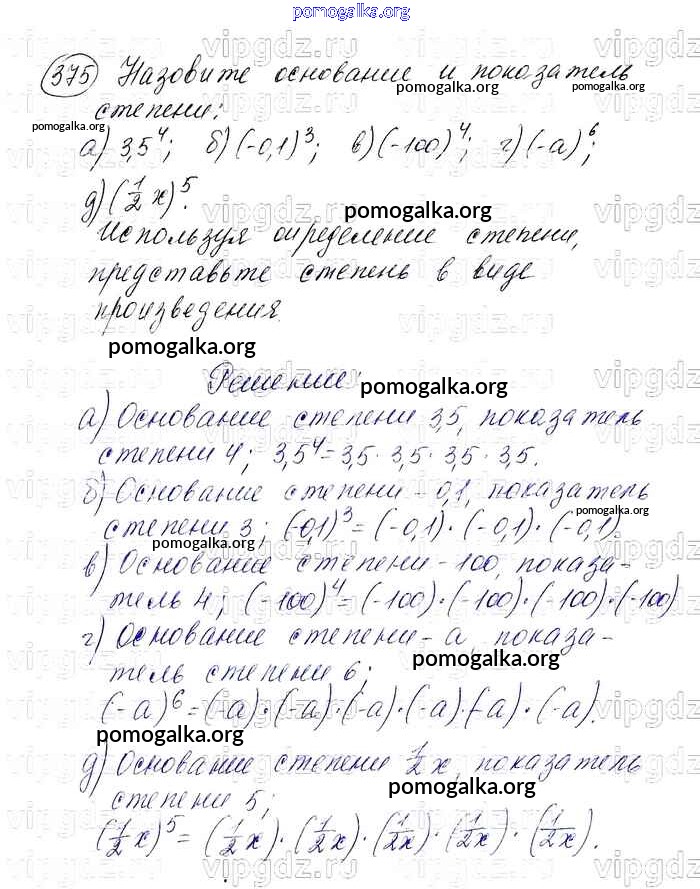 pomogalka.org
375 Назовите основание и показатель
pomogalka.org pomogalka.org
степени:
pomogalka.org
а) 3,5⁴; б) (-0,1)³; в) (-100)⁴; г) (-а)⁶;
д) (1/2 x)⁵.
pomogalka.org
Используя определение степени,
представьте степень в виде
произведения.
pomogalka.org
Решение:
pomogalka.org
а) Основание степени 3,5, показатель
степени 4; 3,5⁴ = 3,5 · 3,5 · 3,5 · 3,5.
б) Основание степени -0,1, показатель
степени 3; (-0,1)³ = (-0,1) · (-0,1) · (-0,1).
pomogalka.org pomogalka.org
в) Основание степени -100, показа-
тель 4; (-100)⁴ = (-100) · (-100) · (-100) · (-100)
г) Основание степени -а, показа-
тель степени 6;
pomogalka.org
(-а)⁶ = (-а) · (-а) · (-а) · (-а) · (-а) · (-а).
pomogalka.org
д) Основание степени 1/2 x, показатель
pomogalka.org
степени 5;
(1/2 x)⁵ = (1/2 x) · (1/2 x) · (1/2 x) · (1/2 x) · (1/2 x).